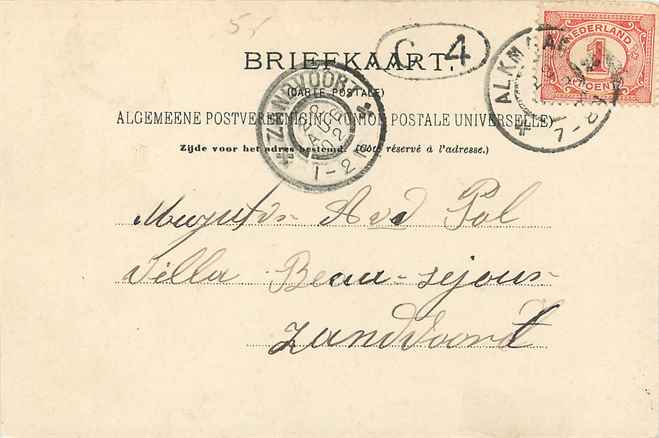 5/
BRIEFKAART.
G. 4
(CARTE POSTALE)
ALGEMEENE POSTVEREENIGING (UNION POSTALE UNIVERSELLE)
Zijde voor het adres bestemd. (Côté réservé à l'adresse.)
ZANDVOORT
AUG
02
1-2N
ALKMAAR
7-8
NEDERLAND
1
CENT
Avd Pol
Villa Beau-sejour
Zandvoort